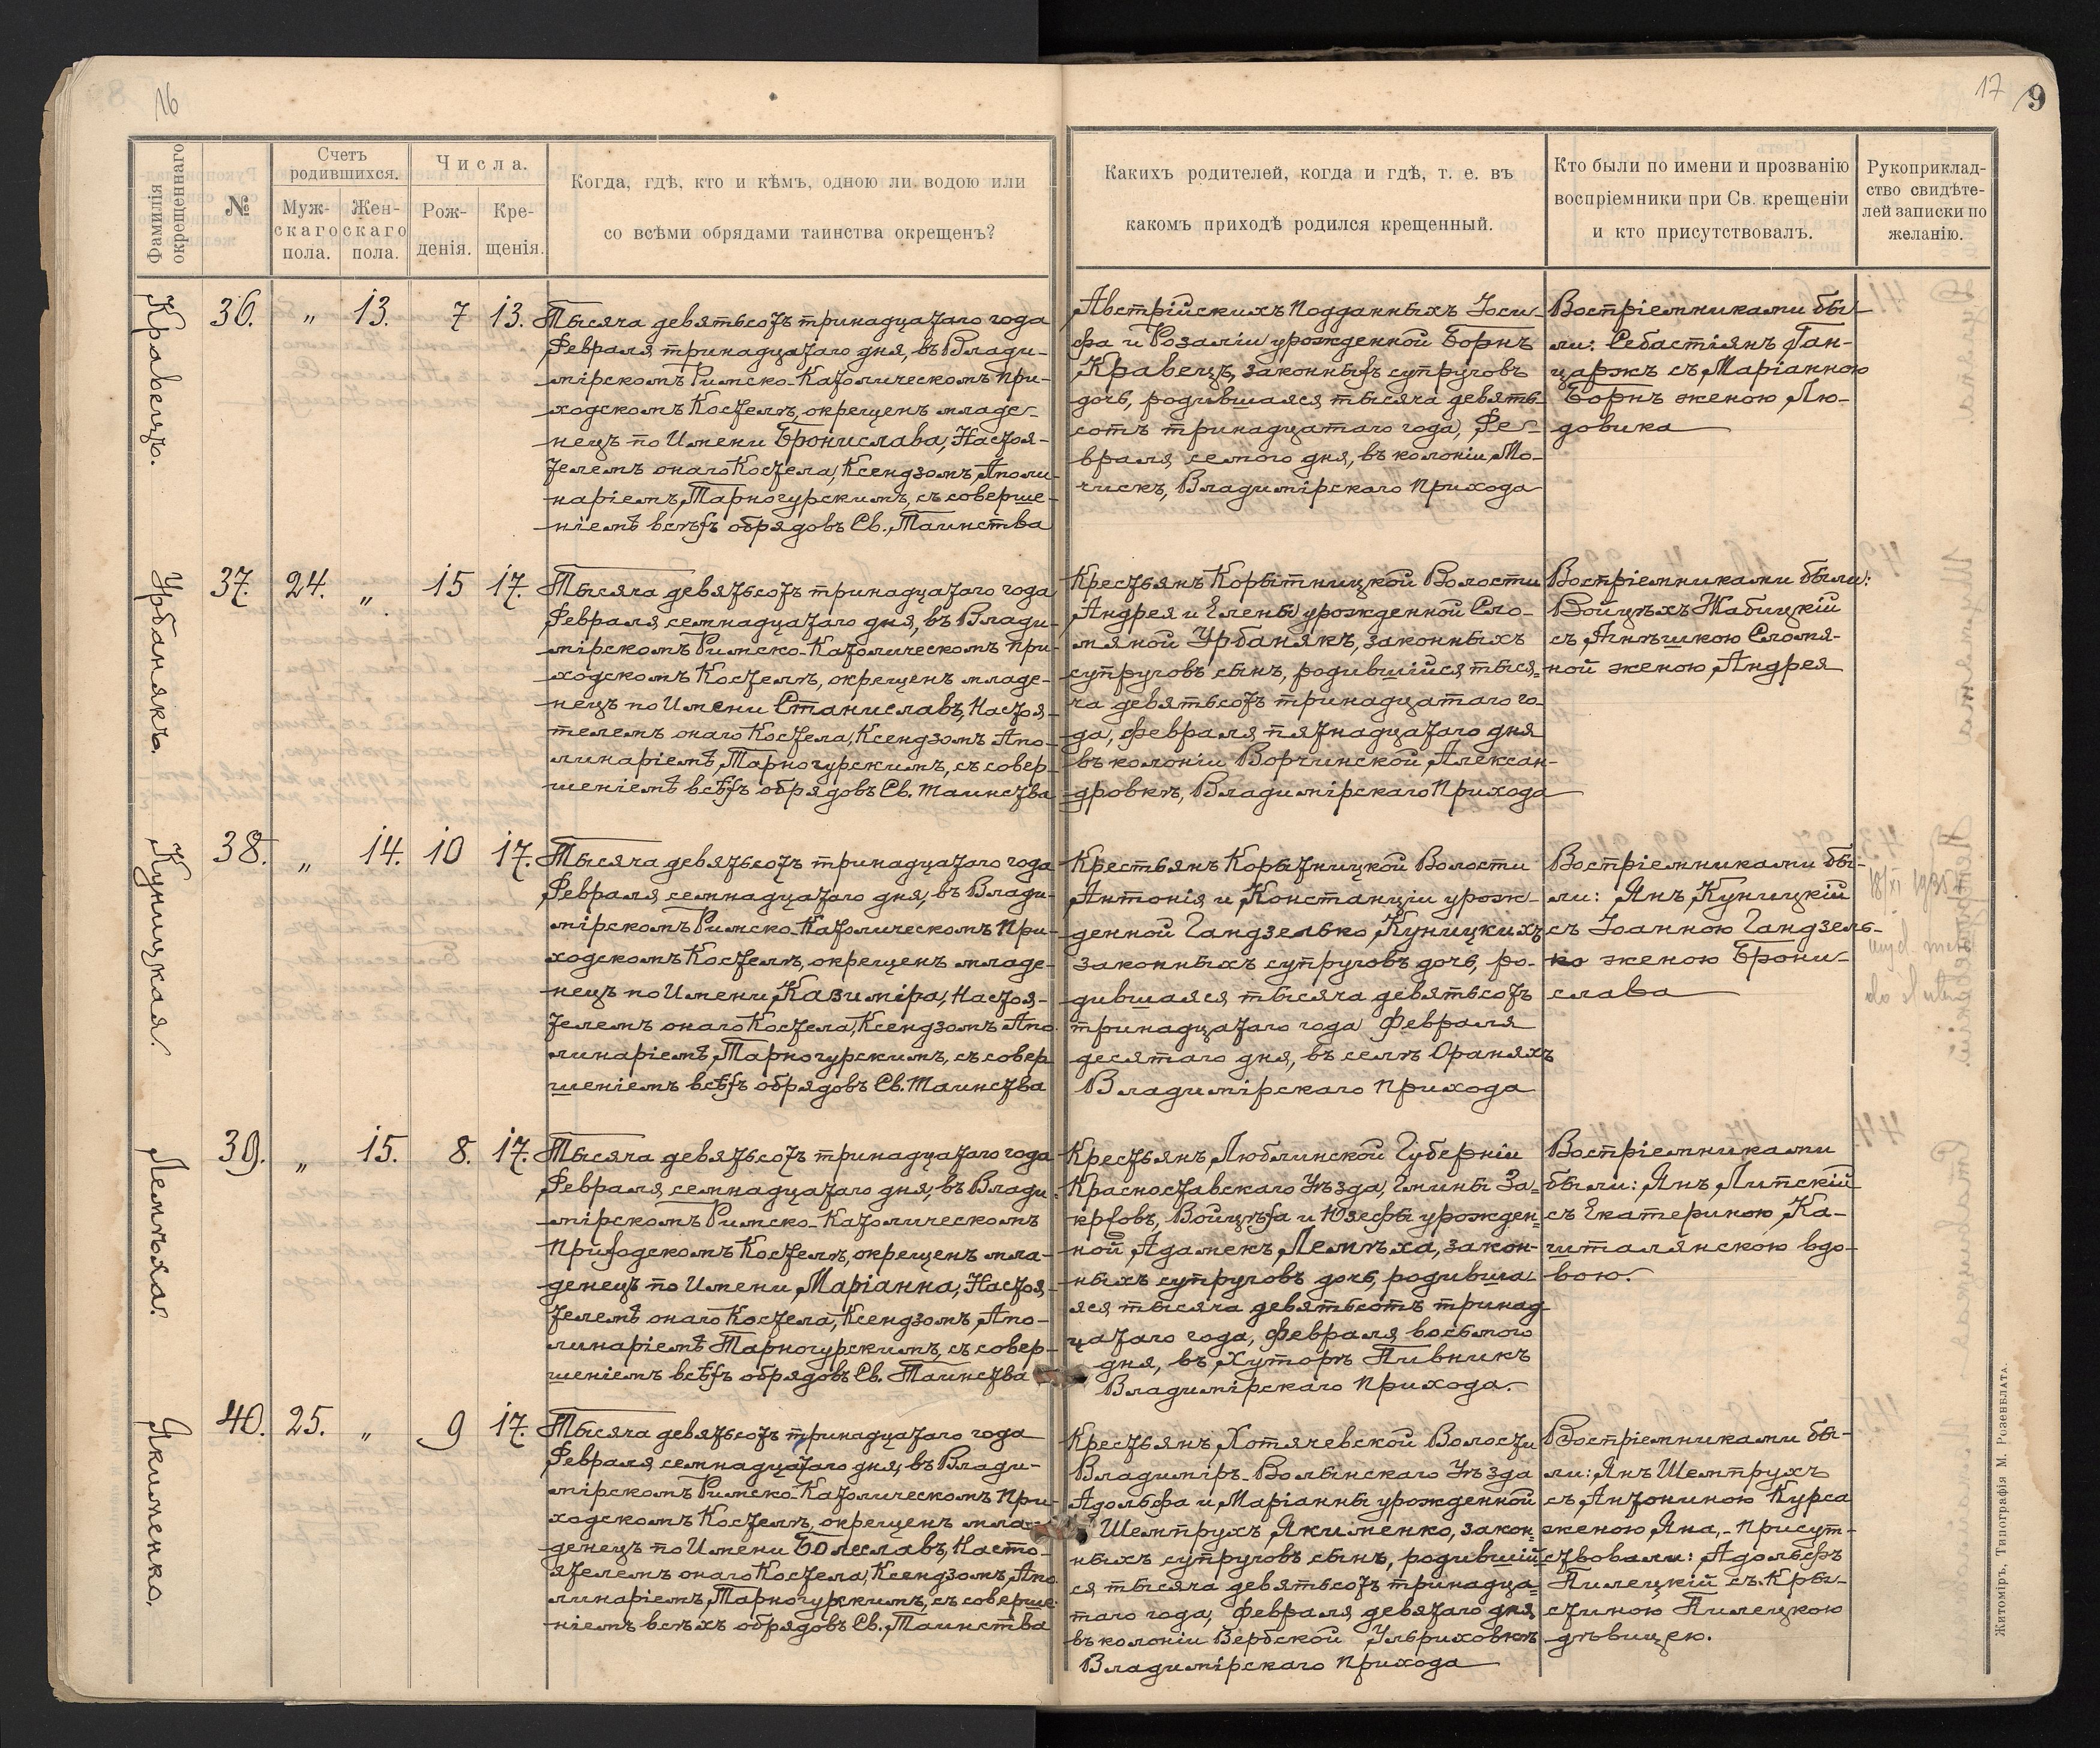 16
17
9
Фамилія окрещеннаго
№
Счетъ родившихся.
Муж-скаго пола.
Жен-скаго пола.
Числа.
Рож-денія.
Кре-щенія.
Когда, гдѣ, кто и кѣмъ, одною ли водою или
со всѣми обрядами таинства окрещенъ?
Какихъ родителей, когда и гдѣ, т. е. въ
какомъ приходѣ родился крещенный.
Кто были по имени и прозванію
воспріемники при Св. крещеніи
и кто присутствовалъ.
Рукоприклад-
ство свидѣте-
лей записки по
желанію.
Кравецъ.
36. „ 13. 7 13.
Тысяча девятьсотъ тринадцатаго года
Февраля тринадцатаго дня, въ Влади-
мірскомъ Римско-Католическомъ При-
ходскомъ Костелѣ, окрещенъ младе-
нецъ по Имени Бронислава, Настоя-
телемъ онаго Костела, Ксендзомъ Аполи-
наріемъ Тарногурскимъ, съ соверше-
ніемъ всѣхъ обрядовъ Св. Таинства
Австрійскихъ Подданныхъ Іоси-
фа и Розаліи урожденной Борнъ
Кравецъ, законныхъ супруговъ
дочь, родившаяся тысяча девять-
сотъ тринадцатаго года, Фе-
враля седмого дня, въ колоніи Мо-
чискъ, Владимірскаго Прихода
Воспріемниками бы-
ли: Себастіянъ Ган-
царжъ съ Маріанною
Борнъ женою Лю-
довика
Урбанякъ.
37. 24. „ 15 17.
Тысяча девятьсотъ тринадцатаго года
Февраля семнадцатаго дня, въ Влади-
мірскомъ Римско-Католическомъ При-
ходскомъ Костелѣ, окрещенъ младе-
нецъ по Имени Станиславъ, Настоя-
телемъ онаго Костела, Ксендзомъ Апо-
линаріемъ Тарногурскимъ, съ совер-
шеніемъ всѣхъ обрядовъ Св. Таинства
Крестьянъ Корытницкой Волости
Андрея и Елены урожденной Сло-
мяной Урбанякъ, законныхъ
супруговъ сынъ, родившійся тыся-
ча девятьсотъ тринадцатаго го-
да, февраля пятнадцатаго дня
въ колоніи Ворчинской Алексан-
дровкѣ, Владимірскаго Прихода
Воспріемниками были:
Войцѣхъ Жабицкій
съ Агнѣшкою Сломя-
ной женою Андрея
Куницкая.
38. „ 14. 10 17.
Тысяча девятьсотъ тринадцатаго года
Февраля семнадцатаго дня, въ Влади-
мірскомъ Римско-Католическомъ При-
ходскомъ Костелѣ, окрещенъ младе-
нецъ по Имени Казиміра, Настоя-
телемъ онаго Костела, Ксендзомъ Апо-
линаріемъ Тарногурскимъ, съ совер-
шеніемъ всѣхъ обрядовъ Св. Таинства
Крестьянъ Корытницкой Волости
Антонія и Констанціи урож-
денной Гандзелько Куницкихъ
законныхъ супруговъ дочь, ро-
дившаяся тысяча девятьсотъ
тринадцатаго года Февраля
десятаго дня, въ селѣОраняхъ
Владимірскаго Прихода
Воспріемниками бы-
ли: Янъ Куницкій
съ Іоанною Гандзель-
ко женою Брони-
слава
18/XI 1935
Лемѣха.
39. „ 15. 8. 17.
Тысяча девятьсотъ тринадцатаго года
Февраля, семнадцатаго дня, въ Влади-
мірскомъ Римско-Католическомъ
Приходскомъ Костелѣ, окрещенъ мла-
денецъ по Имени Маріанна, Настоя-
телемъ онаго Костела, Ксендзомъ Апо-
линаріемъ Тарногурскимъ, съ совер-
шеніемъ всѣхъ обрядовъ Св. Таинства
Крестьянъ Люблинской Губерніи
Красноставскаго Уѣзда, Гмины За-
кржовъ, Войцѣха и Юзефы урожден-
ной Адамекъ Лемѣха, закон-
ныхъ супруговъ дочь, родивша-
яся тысяча девятьсотъ тринад-
цатаго года, Февраля восьмого
дня, въ Хуторѣ Пивникъ
Владимірскаго Прихода.
Воспріемниками
были: Янъ Липскій
съ Екатериною Ка-
шталянскою вдо-
вою.
Якименко.
40. 25. „ 9 17.
Тысяча девятьсотъ тринадцатаго года
Февраля семнадцатаго дня, въ Влади-
мірскомъ Римско-Католическомъ При-
ходскомъ Костелѣ, окрещенъ мла-
денецъ по Имени Болеславъ, Насто-
ятелемъ онаго Костела, Ксендзомъ Апо-
линаріемъ Тарногурскимъ, съ соверше-
ніемъ всѣхъ обрядовъ Св. Таинства
Крестьянъ Хотячевской Волости
Владиміръ-Волынскаго Уѣзда
Адольфа и Маріанны урожденной
Шемпрухъ Якименко, закон-
ныхъ супруговъ сынъ, родившій-
ся тысяча девятьсотъ тринадца-
таго года, Февраля девятаго дня,
въ колоніи Вербской Ульриховкѣ
Владимірскаго Прихода
Воспріемниками бы-
ли: Янъ Шемпрухъ
съ Антониною Курса
женою Яна, - Присут-
ствовали: Адольфъ
Пилецкій съ Кры-
стиною Пилецкою
дѣвицею.
Житоміръ, Типографія М. Розенблата.